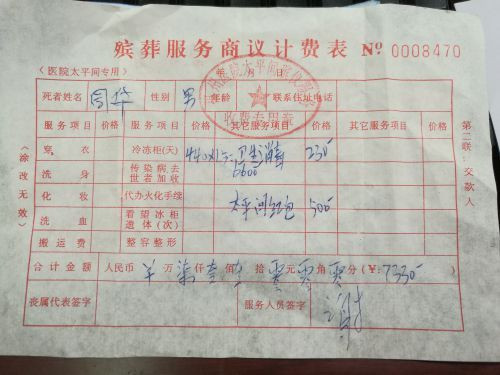 殡葬服务商议计费表 No 0008470
（医院太平间专用） 年 月 日
死者姓名 性别 男 年龄 联系住址电话
服务项目 价格 服务项目 价格 其它服务项目 价格 其它服务项目 价格
穿衣 冷冻柜(天) 卫生消毒 230
洗身 传染病去世者加收
化妆 代办火化手续 太平间红包 500
洗血 看望冰柜遗体(次)
搬运费 整容整形
合计金额 人民币 万 柒仟 佰 拾 零元 零角 零分（¥：7330
丧属代表签字 服务人员签字 谢
（涂改无效）
第二联：交款人
收费专用章